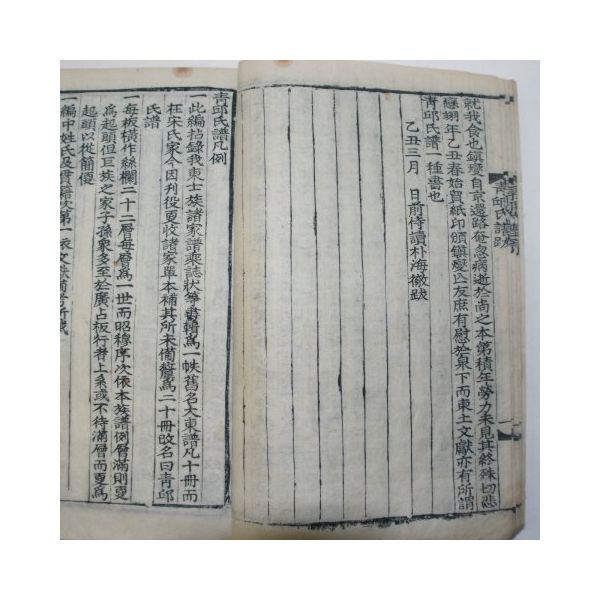 就我食也鎭燮自京還路奄忽病逝於尚之本第積年勞力未見其終殊切悲
戀翊年乙丑春始買紙印頒鎭燮公友庶有慰於泉下而東土文獻亦有所謂
靑邱氏譜一種書也
乙丑三月 日前侍讀朴海徹跋
靑邱氏譜跋
靑邱氏譜凡例
一此編拈錄我東士族諸家譜乘誌狀等書輯爲一帙舊名大東譜凡十冊而
在宋氏家今因刊役更收諸家單本補其所未備釐爲二十冊改名曰靑邱
氏譜
一每板橫作絲欄二十二層每層爲一世而昭穆序次依本族譜例層滿則更
爲起頭但巨族之家子孫衆多至於廣占板行者上系或不待滿層而更爲
起頭以從簡便
一編中姓氏及貫籍次第一依文献備考所載